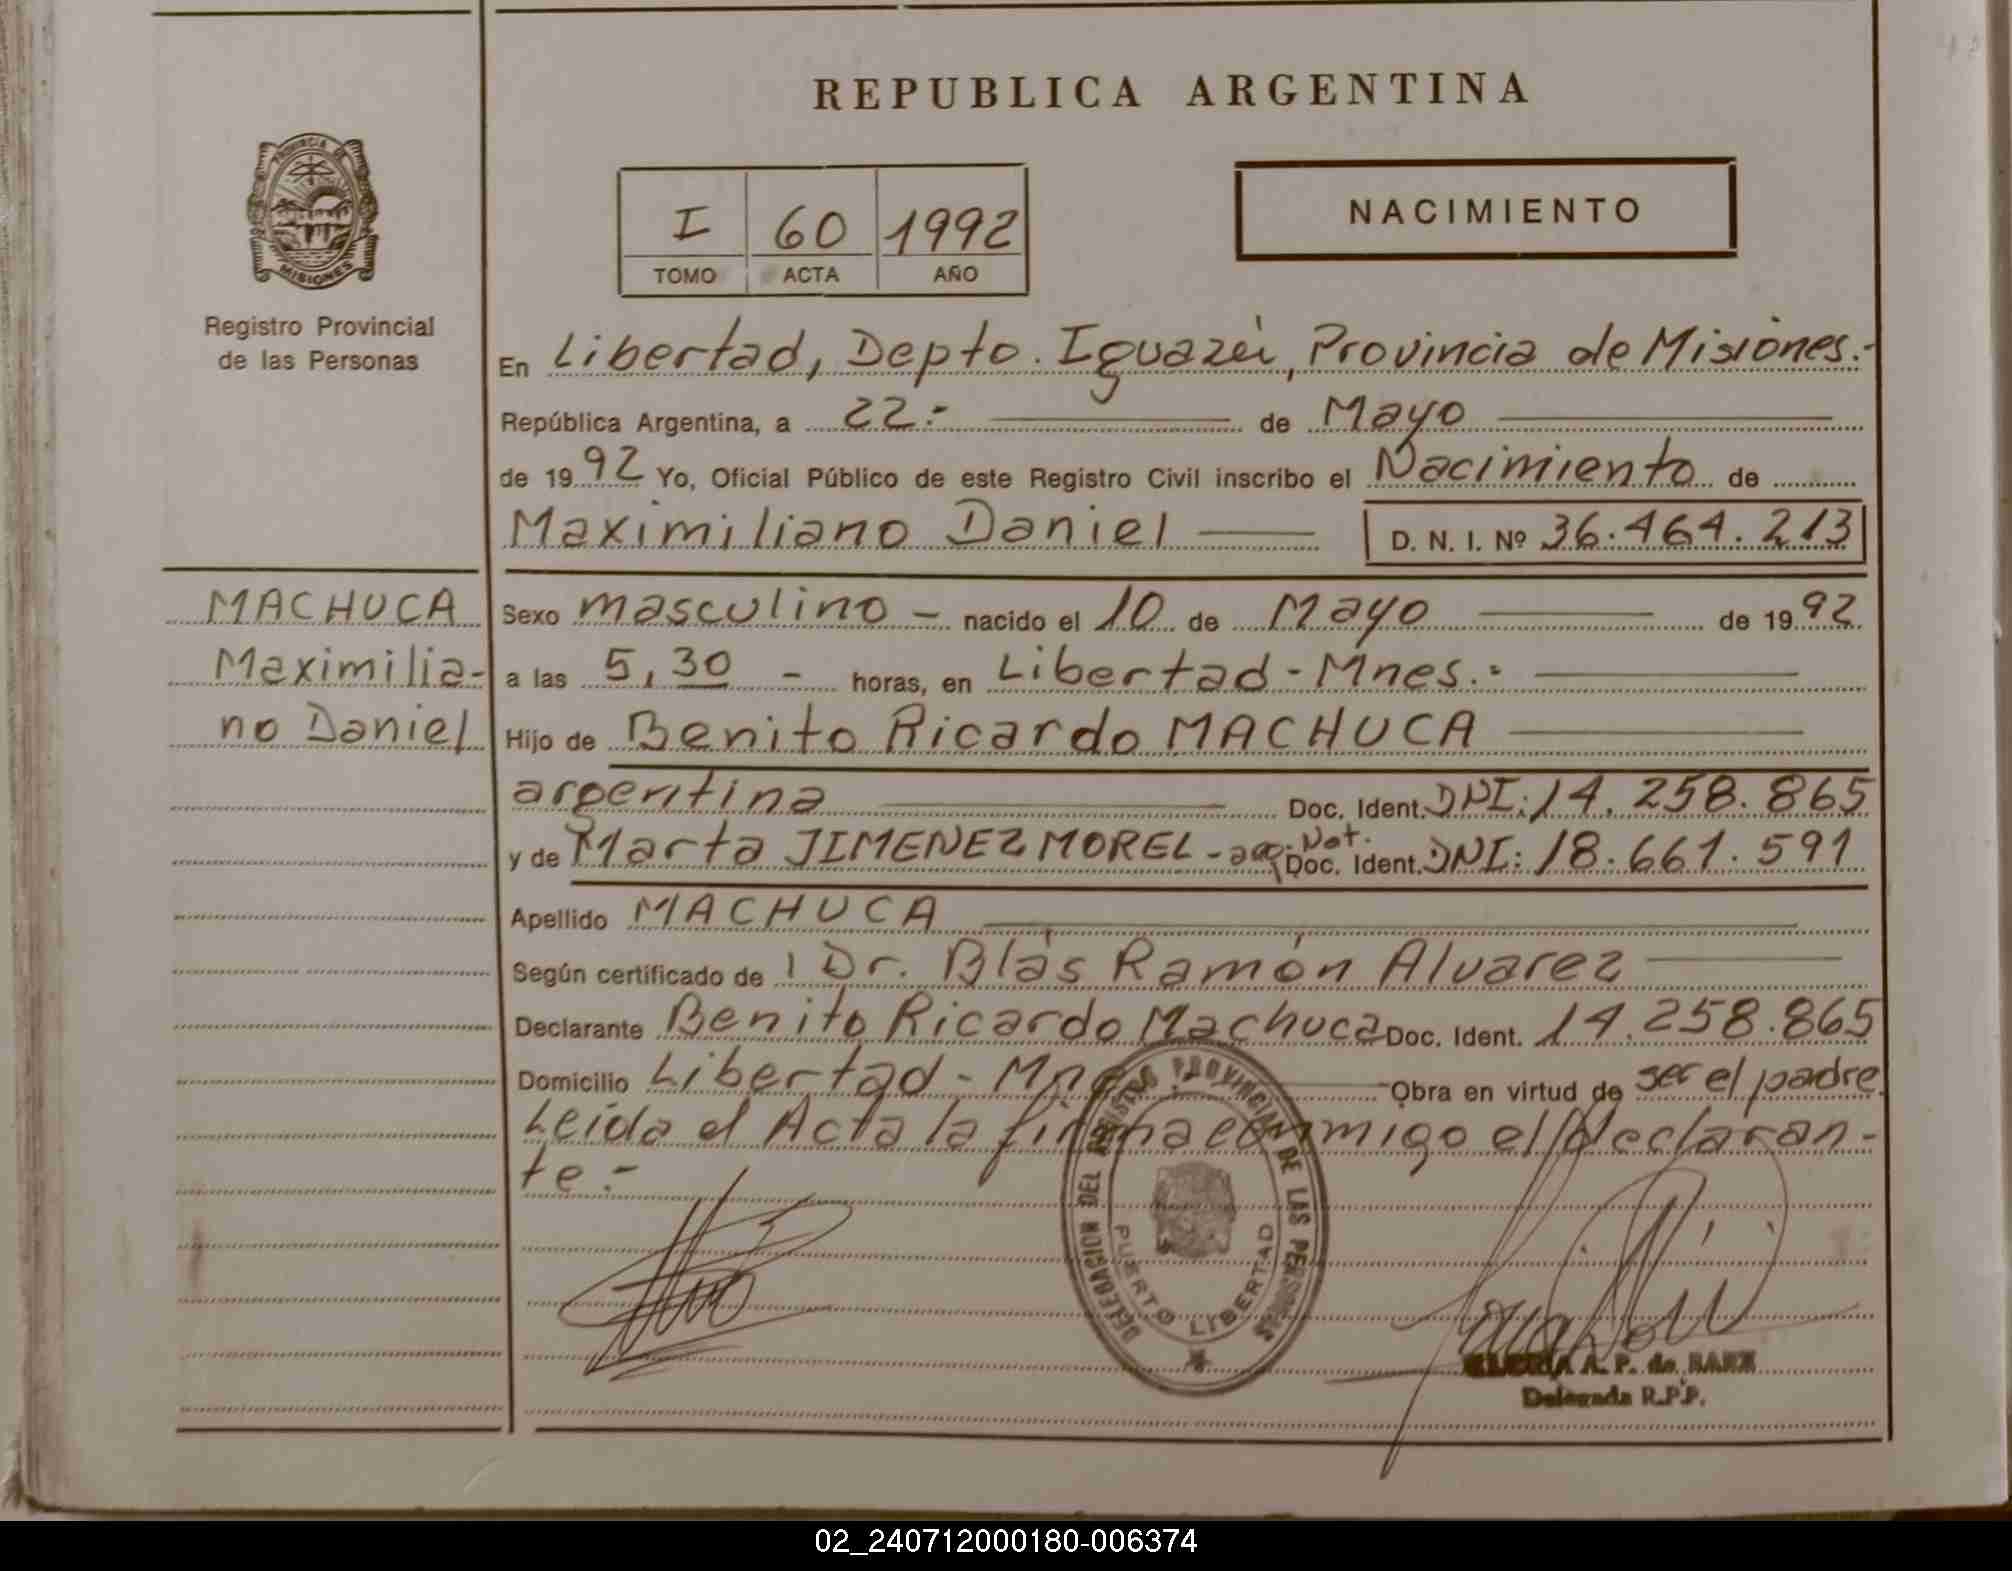 REPUBLICA ARGENTINA
PROVINCIA DE
MISIONES
Registro Provincial
de las Personas
I 60 1992
TOMO ACTA AÑO
NACIMIENTO
En Libertad, Depto. Iguazú, Provincia de Misiones.-
República Argentina, a 22.- de Mayo
de 1992 Yo, Oficial Público de este Registro Civil inscribo el Nacimiento de
Maximiliano Daniel D. N. I. Nº 36.464.213
MACHUCA
Maximilia-
no Daniel
Sexo masculino - nacido el 10 de Mayo de 1992
a las 5,30 - horas, en Libertad - Mnes.-
Hijo de Benito Ricardo MACHUCA
argentina Doc. Ident. DNI: 14.258.865
y de Marta JIMENEZ MOREL - Nat. Doc. Ident. DNI: 18.661.591
Apellido MACHUCA
Según certificado de Dr. Blás Ramón Alvarez
Declarante Benito Ricardo Machuca Doc. Ident. 14.258.865
Domicilio Libertad - Mnes Obra en virtud de ser el padre
Leída el Acta la firma conmigo el declaran-
te.-
DELEGACION DEL REGISTRO PROVINCIAL DE LAS PERSONAS
PUERTO LIBERTAD
A. P. de
Delegada R.P.P.
02_240712000180-006374